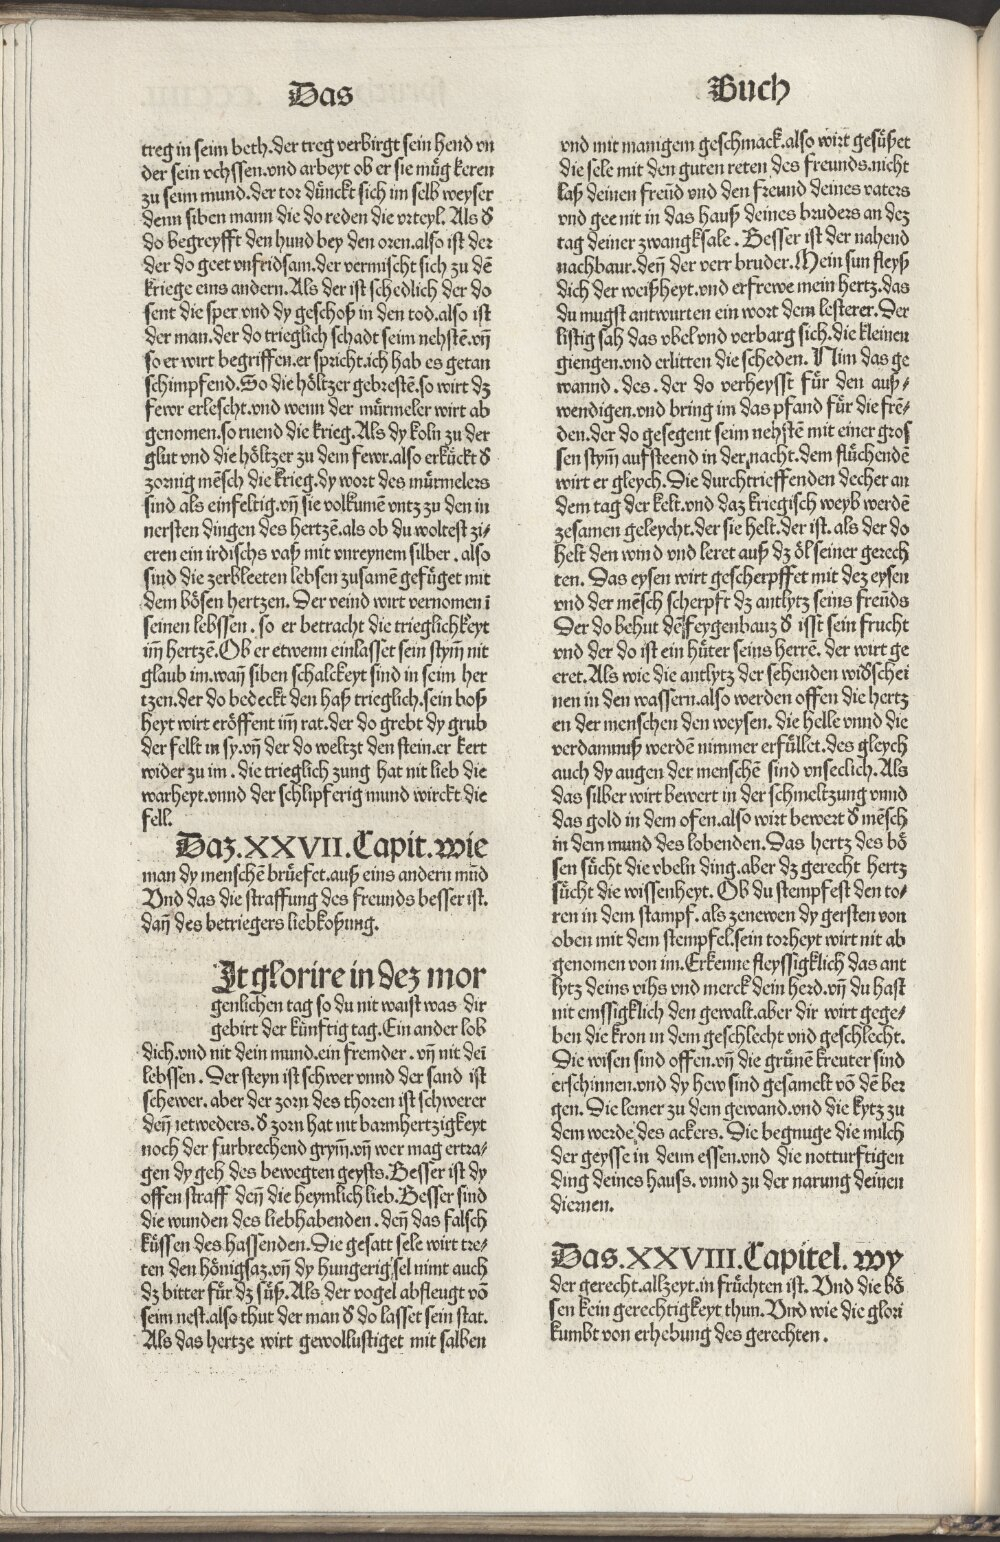 Das
treg in seim beth.der treg verbirgt sein hend vn
der sein vchssen.vnd arbeyt ob er sie müg keren
zu seim mund.der tor dünckt sich im selb weyser
denn siben mann die do reden die vrteyl. Als ð
do begreyfft den hund bey den oren.also ist der
der do geet vnfridsam.der vermischt sich zu dē
kriege eins andern.Als der ist schedlich der do
sent die sper vnd dy geschoß in den tod.also ist
der man.der do trieglich schadt seim nehstē.vn̄
so er wirt begriffen.er spricht.ich hab es getan
schimpfend.So die höltzer gebrestē.so wirt dz
fewr erlescht.vnd wenn der mürmeler wirt ab
genomen.so ruend die krieg.Als dy koln zu der
glut vnd die höltzer zu dem fewr.also erkückt ð
zornig mēsch die krieg.dy wort des mürmelers
sind als einfeltig.vn̄ sie volkumē vntz zu den in
nersten dingen des hertzē.als ob du woltest zi⸗
eren ein irdischs vaß mit vnreynem silber . also
sind die zerbleeten lebsen zusamē gefüget mit
dem bösen hertzen. Der veind wirt vernomen ī
seinen lebssen . so er betracht die trieglichkeyt
im̄ hertzē.Ob er etwenn einlasset sein stym̄ nit
glaub im.wan̄ siben schalckeyt sind in seim her
tzen.der do bedeckt den haß trieglich.sein boß
heyt wirt eröffent im̄ rat.der do grebt dy grub
der fellt in sy.vn̄ der do weltzt den stein.er kert
wider zu im . die trieglich zung hat nit lieb die
warheyt.vnnd der schlipferig mund wirckt die
fell.
Daz.XXVII.Capit.wie
man dy menschē brüefet.auß eins andern mūd
Vnd das die straffung des freunds besser ist.
dan̄ des betriegers liebkoßung.
It glorire in dez mor
genlichen tag so du nit waist was dir
gebirt der künftig tag.Ein ander lob
dich.vnd nit dein mund.ein fremder . vn̄ nit dei̅
lebssen . Der steyn ist schwer vnnd der sand ist
schewer. aber der zorn des thoren ist schwerer
den̄ ietweders. ð zorn hat nit barmhertzigkeyt
noch der furbrechend grym̄.vn̄ wer mag ertra⸗
gen dy geh des bewegten geysts.Besser ist dy
offen straff den̄ die heymlich lieb.Besser sind
die wunden des liebhabenden . den̄ das falsch
küssen des hassenden.Die gesatt sele wirt tre⸗
ten den hönigsaz.vn̄ dy hungerig sel nimt auch
dz bitter für dz süß. Als der vogel abfleugt vō
seim nest.also thut der man ð do lasset sein stat.
Als das hertze wirt gewollustiget mit salben
Buch
vnd mit manigem geschmack.also wirt gesüßet
die sele mit den guten reten des freunds.nicht
laß deinen freūd vnd den freund deines vaters
vnd gee nit in das hauß deines bruders an dez
tag deiner zwangksale . Besser ist der nahend
nachbaur.den̄ der verr bruder.Mein sun fleyß
dich der weißheyt.vnd erfrewe mein hertz.das
du mugst antwurten ein wort dem lesterer.Der
listig sah das vbel vnd verbarg sich.die kleinen
giengen.vnd erlitten die scheden. Nim das ge
wannd . des . der do verheysst für den auß⸗
wendigen.vnd bring im das pfand für die frē⸗
den.der do gesegent seim nehstē mit einer gros
sen stym̄ aufsteend in der nacht.dem flüchendē
wirt er gleych.Die durchtrieffenden decher an
dem tag der kelt.vnd daz kriegisch weyb werdē
zesamen geleycht.der sie helt.der ist. als der do
helt den wind vnd leret auß dz öl seiner gerech
ten. Das eysen wirt gescherpffet mit dez eysen
vnd der mēsch scherpft dz antlytz seins freūds
Der do behut dē feygenbauz ð isst sein frucht
vnd der do ist ein hüter seins herrē. der wirt ge
eret.Als wie die antlytz der sehenden wiðschei
nen in den wassern.also werden offen die hertz
en der menschen den weysen. die helle vnnd die
verdamnuß werdē nimmer erfüllet.des gleych
auch dy augen der menschē sind vnseclich. Als
das silber wirt bewert in der schmeltzung vnnd
das gold in dem ofen.also wirt bewert ð mēsch
in dem mund des lobenden. Das hertz des bö
sen sücht die vbeln ding.aber dz gerecht hertz
sücht die wissenheyt. Ob du stempfest den to⸗
ren in dem stampf. als zenewen dy gersten von
oben mit dem stempfel.sein torheyt wirt nit ab
genomen von im.Erkenne fleyssigklich das ant
lytz deins vihs vnd merck dein herd.vn̄ du hast
nit emssigklich den gewalt.aber dir wirt gege⸗
ben die kron in dem geschlecht vnd geschlecht.
Die wisen sind offen.vn̄ die grünē kreuter sind
erschinnen.vnd dy hew sind gesamelt vō dē ber
gen. Die lemer zu dem gewand.vnd die kytz zu
dem werde des ackers. Die begnuge die milch
der geysse in deim essen.vnd die notturftigen
ding deines hauss. vnnd zu der narung deinen
diernen.
Das.XXVIII.Capitel. wy
der gerecht.allzeyt.in früchten ist. Vnd die bö
sen kein gerechtigkeyt thun.Vnd wie die glori
kumbt von erhebung des gerechten .